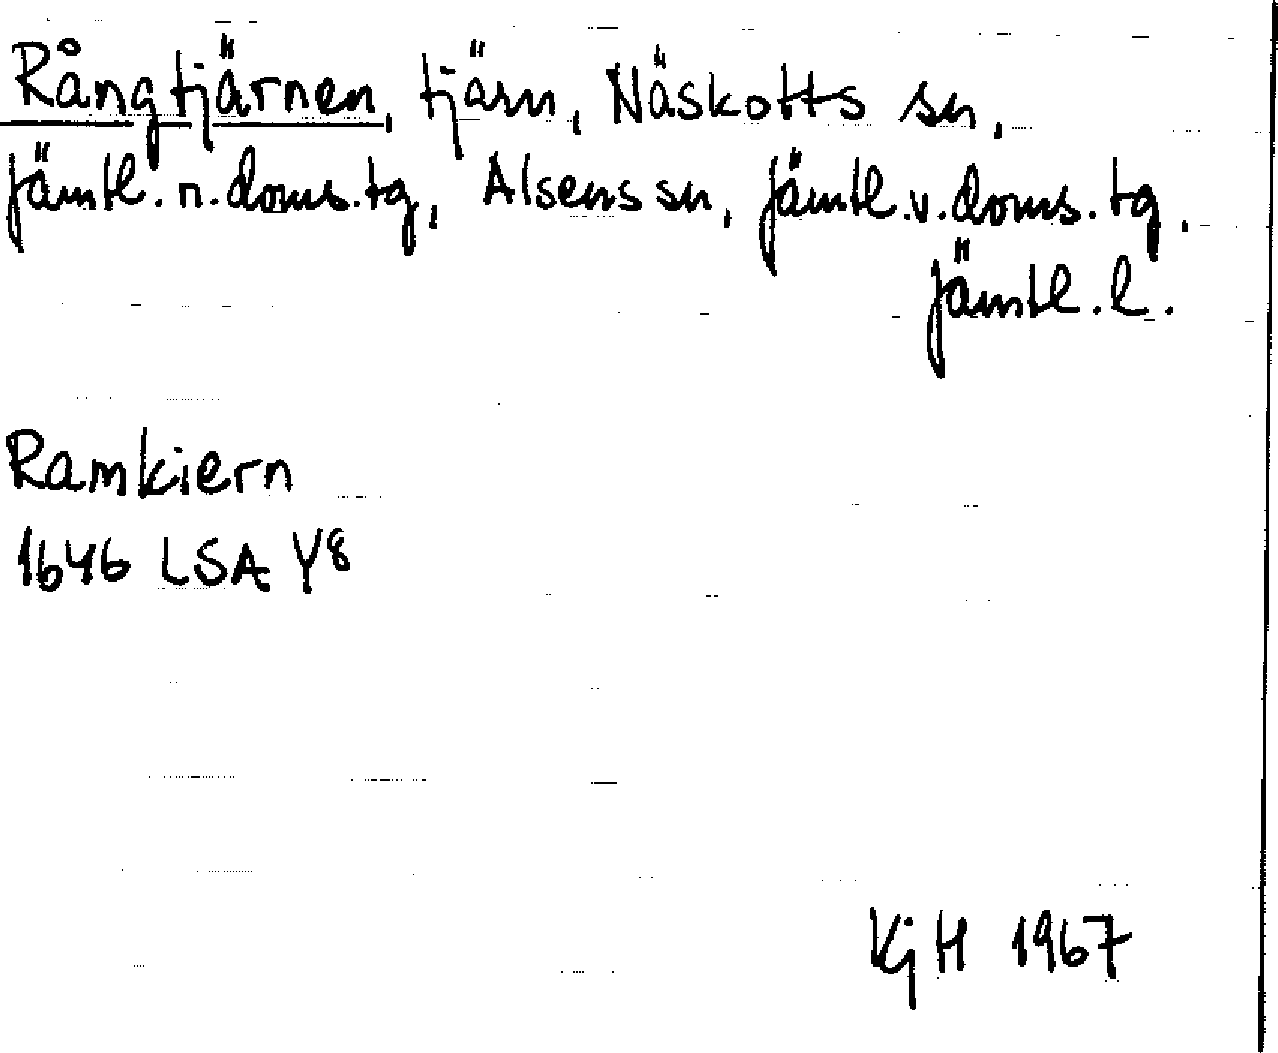 Rångtjärnen, tjärn, Näskotts sn,
Jämtl. n. doms. tg, Alsens sn, Jämtl. v. doms. tg,
Jämtl. l.
Ramkiern
1646 LSA Y8
KjH 1967